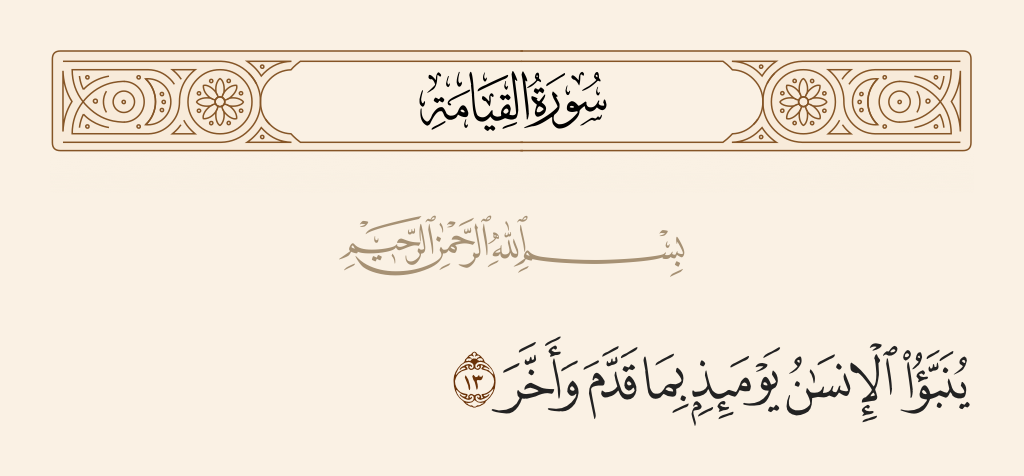 سُورَةُ القِيَامَةِ
بِسْمِ ٱللَّهِ ٱلرَّحْمَٰنِ ٱلرَّحِيمِ
يُنَبَّؤُا۟ ٱلْإِنسَٰنُ يَوْمَئِذٍۭ بِمَا قَدَّمَ وَأَخَّرَ ١٣